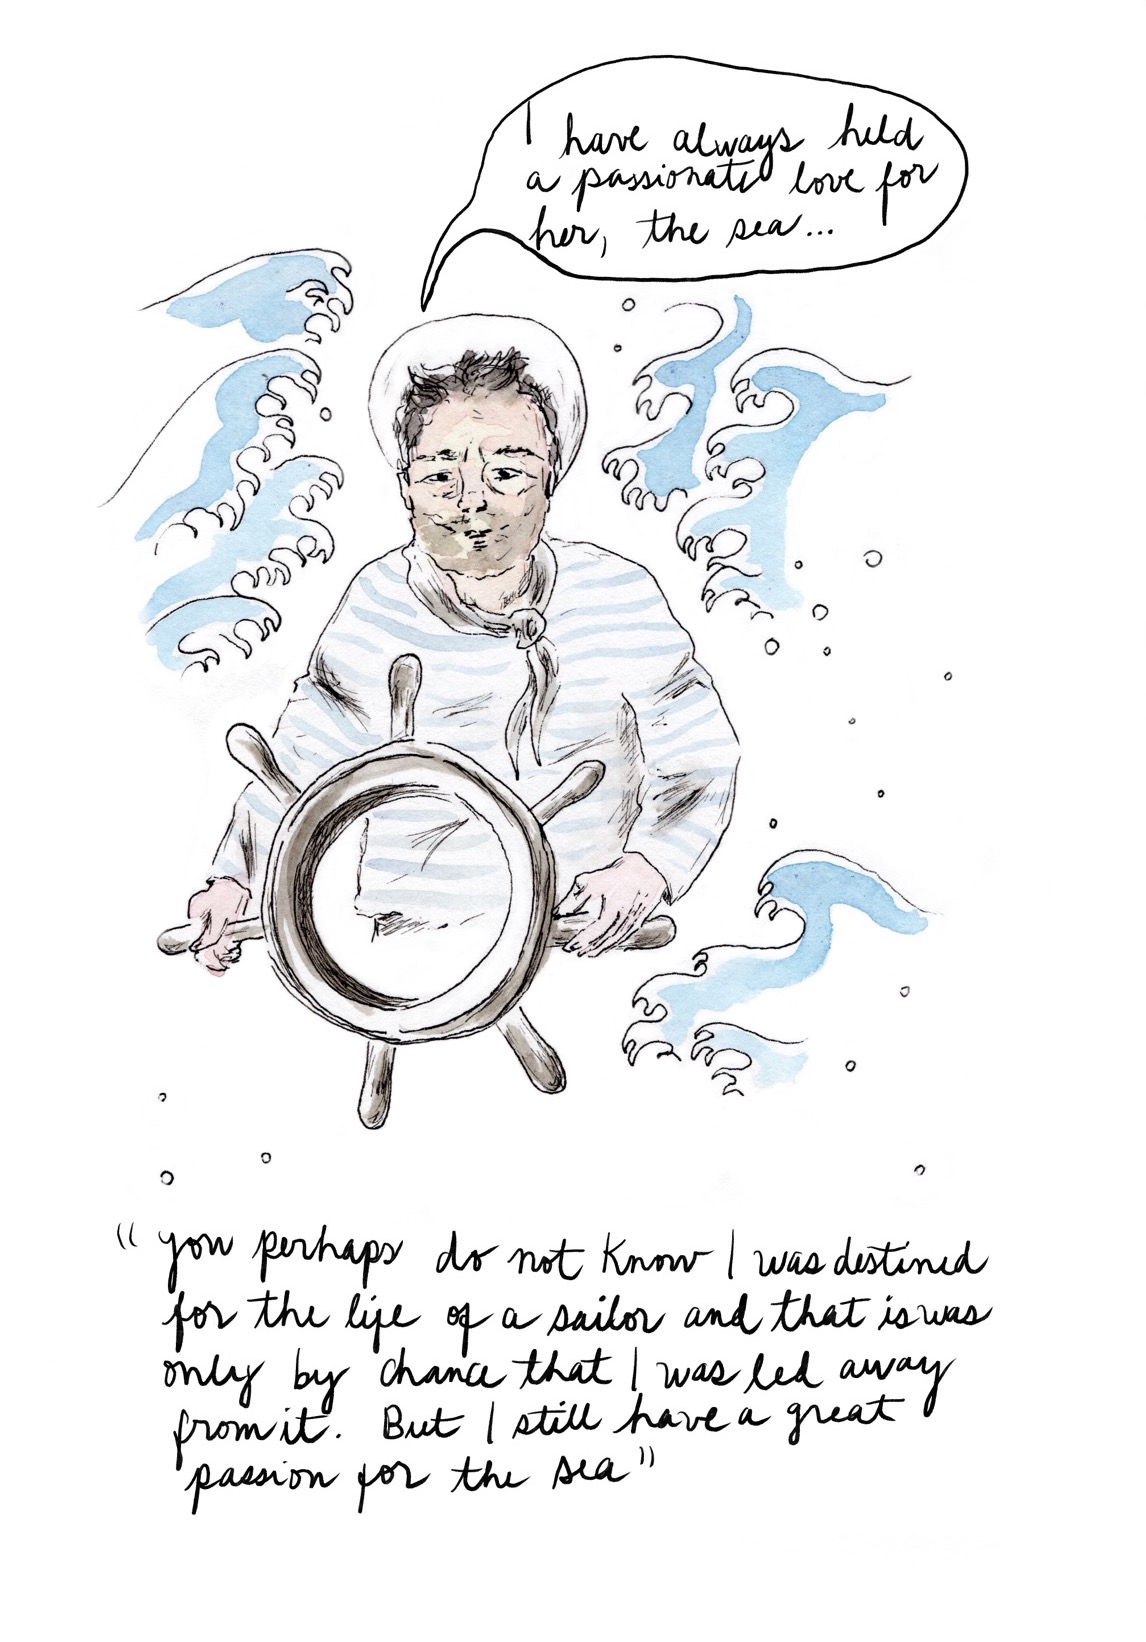 I have always held
a passionate love for
her, the sea...
"you perhaps do not know I was destined
for the life of a sailor and that is was
only by chance that I was led away
from it. But I still have a great
passion for the sea"